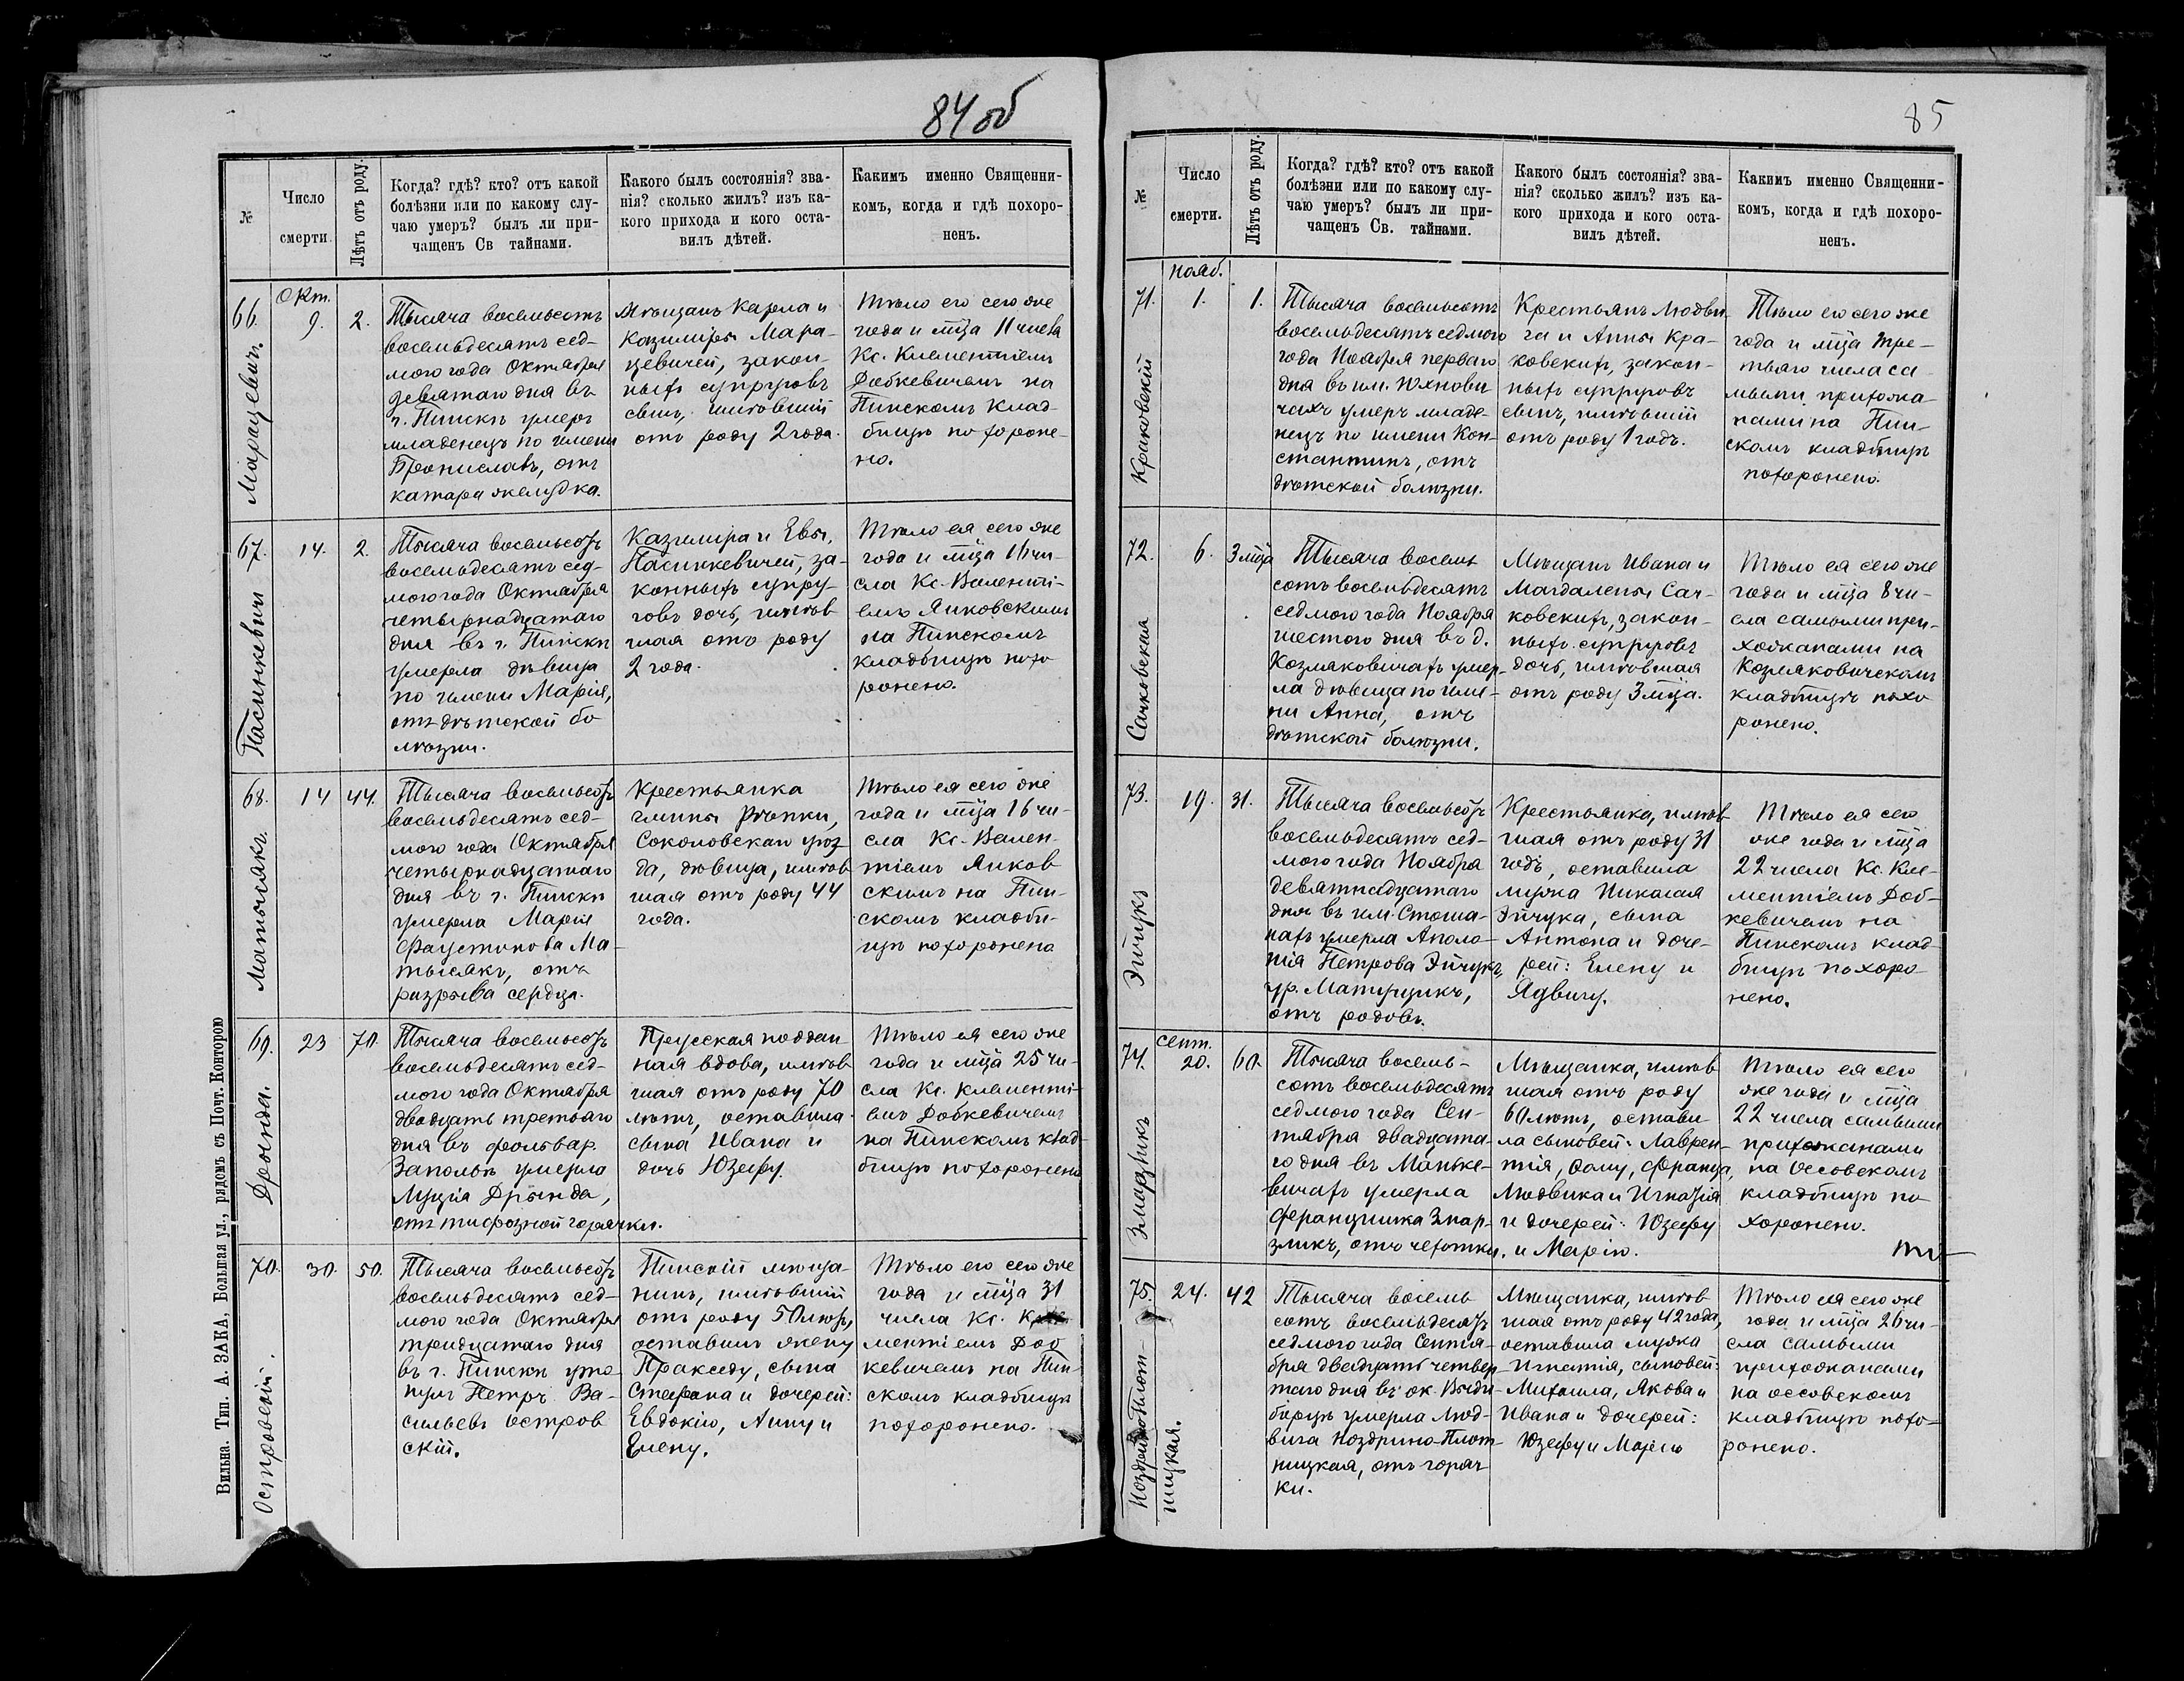 84 об
№
Число
смерти
Лѣтъ отъ роду.
Когда? гдѣ? кто? отъ какой
болѣзни или по какому слу-
чаю умеръ? былъ ли при-
чащенъ Св тайнами.
Какого былъ состоянія? зва-
нія? сколько жилъ? изъ ка-
кого прихода и кого оста-
вилъ дѣтей.
Какимъ именно Священни-
комъ, когда и гдѣ похоро-
ненъ.
66.
Марацевичъ
Окт.
9.
2.
Тысяча восемьсотъ
восемьдесятъ сед-
мого года Октября
девятаго дня въ
г. Пинскѣ умеръ
младенецъ по имени
Брониславъ, отъ
катара желудка.
Мѣщанъ Карла и
Казиміры Мара-
цевичей, закон-
ныхъ супруговъ
сынъ, имѣвшій
отъ роду 2 года.
Тѣло его сего же
года и мца 11 числа
Кс. Клементіемъ
Добкевичемъ на
Пинскомъ клад-
бищѣ похороне-
но.
67.
Пасинкевичъ
14.
2.
Тысяча восемьсотъ
восемьдесятъ сед-
мого года Октября
четырнадцатаго
дня въ г. Пинскѣ
умерла дѣвица
по имени Марія,
отъ дѣтской бо
лѣзни.
Казимира и Евы,
Пасинкевичей, за-
конныхъ супру-
говъ дочь, имѣв
шая отъ роду
2 года.
Тѣло ея сего же
года и мца 16 чи-
сла Кс. Валенті-
емъ Янковскимъ
на Пинскомъ
кладбищѣ похо
ронено.
68.
Матысякъ
14
44.
Тысяча восемьсотъ
восемьдесятъ сед-
мого года Октября
четырнадцатаго
дня въ г. Пинскѣ
умерла Марія
Фаустинова Ма-
тысякъ, отъ
разрыва сердца.
Крестьянка
гмины Рѣпки,
Соколовскаго уѣз
да, дѣвица, имѣв
шая отъ роду 44
года.
Тѣло ея сего же
года и мца 16 чи-
сла Кс. Вален-
тіемъ Янков
скимъ на Пин-
скомъ кладби-
щѣ похоронена
69.
Дрында.
23
70.
Тысяча восемьсотъ
восемьдесятъ сед-
мого года Октября
двадцать третьяго
дня въ фольвар.
Заполье умерла
Луція Дрында,
отъ тифозной горячки.
Прусская поддан
ная вдова, имѣв
шая отъ роду 70
лѣтъ, оставила
сына Ивана и
дочь Юзефу.
Тѣло ея сего же
года и мца 25 чи-
сла Кс. Клементі-
емъ Добкевичемъ
на Пинскомъ клад-
бищѣ похоронено
70.
Островскій.
30.
50.
Тысяча восемьсотъ
восемьдесятъ сед-
мого года Октября
тридцатаго дня
въ г. Пинскѣ уто-
нулъ Петръ Ва-
сильевъ Остров
скій.
Пинскій мѣща-
нинъ, имѣвшій
отъ роду 50 лѣтъ,
оставилъ жену
Пракседу, сына
Стефана и дочерей:
Евдокію, Анну и
Елену.
Тѣло его сего же
года и мца 31
числа Кс. Кле
ментіемъ Доб
кевичемъ на Пин-
скомъ кладбищѣ
похоронено.
Вильна. Тип. А. ЗАКА, Большая ул., рядомъ съ Почт. Конторою
85
№
Число
смерти.
Лѣтъ отъ роду.
Когда? гдѣ? кто? отъ какой
болѣзни или по какому слу-
чаю умеръ? былъ ли при-
чащенъ Св. тайнами.
Какого былъ состоянія? зва-
нія? сколько жилъ? изъ ка-
кого прихода и кого оста-
вилъ дѣтей.
Какимъ именно Священни-
комъ, когда и гдѣ похоро-
ненъ.
71.
Краковскій
нояб.
1.
1.
Тысяча восемьсотъ
восемьдесятъ седмого
года Ноября перваго
дня въ им. Юхнови
чахъ умеръ младе-
нецъ по имени Кон-
стантинъ, отъ
дѣтской болѣзни.
Крестьянъ Людви
га и Анны Кра-
ковскихъ, закон-
ныхъ супруговъ
сынъ, имѣвшій
отъ роду 1 годъ.
Тѣло его сего же
года и мца тре-
тьяго числа са
мыми прихожа-
нами на Пин-
скомъ кладбищѣ
похоронено.
72.
Сачковская
6.
3 мца
Тысяча восемь
сотъ восемьдесятъ
седмого года Ноября
шестого дня въ д.
Козляковичахъ умер-
ла дѣвица по име-
ни Анна, отъ
дѣтской болѣзни.
Мѣщанъ Ивана и
Магдалены Сач-
ковскихъ, закон-
ныхъ супруговъ
дочь, имѣвшая
отъ роду 3 мца.
Тѣло ея сего же
года и мца 8 чи-
сла самыми при-
хожанами на
Козляковичскомъ
кладбищѣ похо
ронено.
73.
Эйчукъ
19.
31.
Тысяча восемьсотъ
восемьдесятъ сед-
мого года Ноября
девятнадцатаго
дня въ им. Стоша-
нахъ умерла Аполо-
нія Петрова Эйчукъ,
ур. Матущикъ,
отъ родовъ.
Крестьянка, имѣв
шая отъ роду 31
годъ, оставила
мужа Николая
Эйчука, сына
Антона и доче-
рей: Елену и
Ядвигу.
Тѣло ея сего
же года и мца
22 числа Кс. Кле-
ментіемъ Доб-
кевичемъ на
Пинскомъ клад-
бищѣ похоро-
нено.
74.
Змарзликъ
сент.
20.
60.
Тысяча восемь-
сотъ восемьдесятъ
седмого года Сен-
тября двадцата-
го дня въ Маньке-
вичахъ умерла
Францишка Змар-
зликъ, отъ чехотки.
Мѣщанка, имѣв
шая отъ роду
60 лѣтъ, остави-
ла сыновей: Лаврен-
тія, Фому, Франца,
Людвика и Игнатія
и дочерей: Юзефу
и Марію.
Тѣло ея сего
же года и мца
22 числа самыми
прихожанами
на Осовскомъ
кладбищѣ по-
хоронено.
75.
Ноздрино-Плот
ницкая.
24.
42
Тысяча восемь
сотъ восемьдесятъ
седмого года Сентя-
бря двадцать четвер
таго дня въ ок. Выди-
борцѣ умерла Люд-
вига Ноздрино-Плот-
ницкая, отъ горяч
ки.
Мѣщанка, имѣв
шая отъ роду 42 года,
оставила мужа
Игнатія, сыновей:
Михаила, Якова и
Ивана и дочерей:
Юзефу и Марію
Тѣло ея сего же
года и мца 26 чи-
сла самыми
прихожанами
на Оссовскомъ
кладбищѣ похо-
ронено.